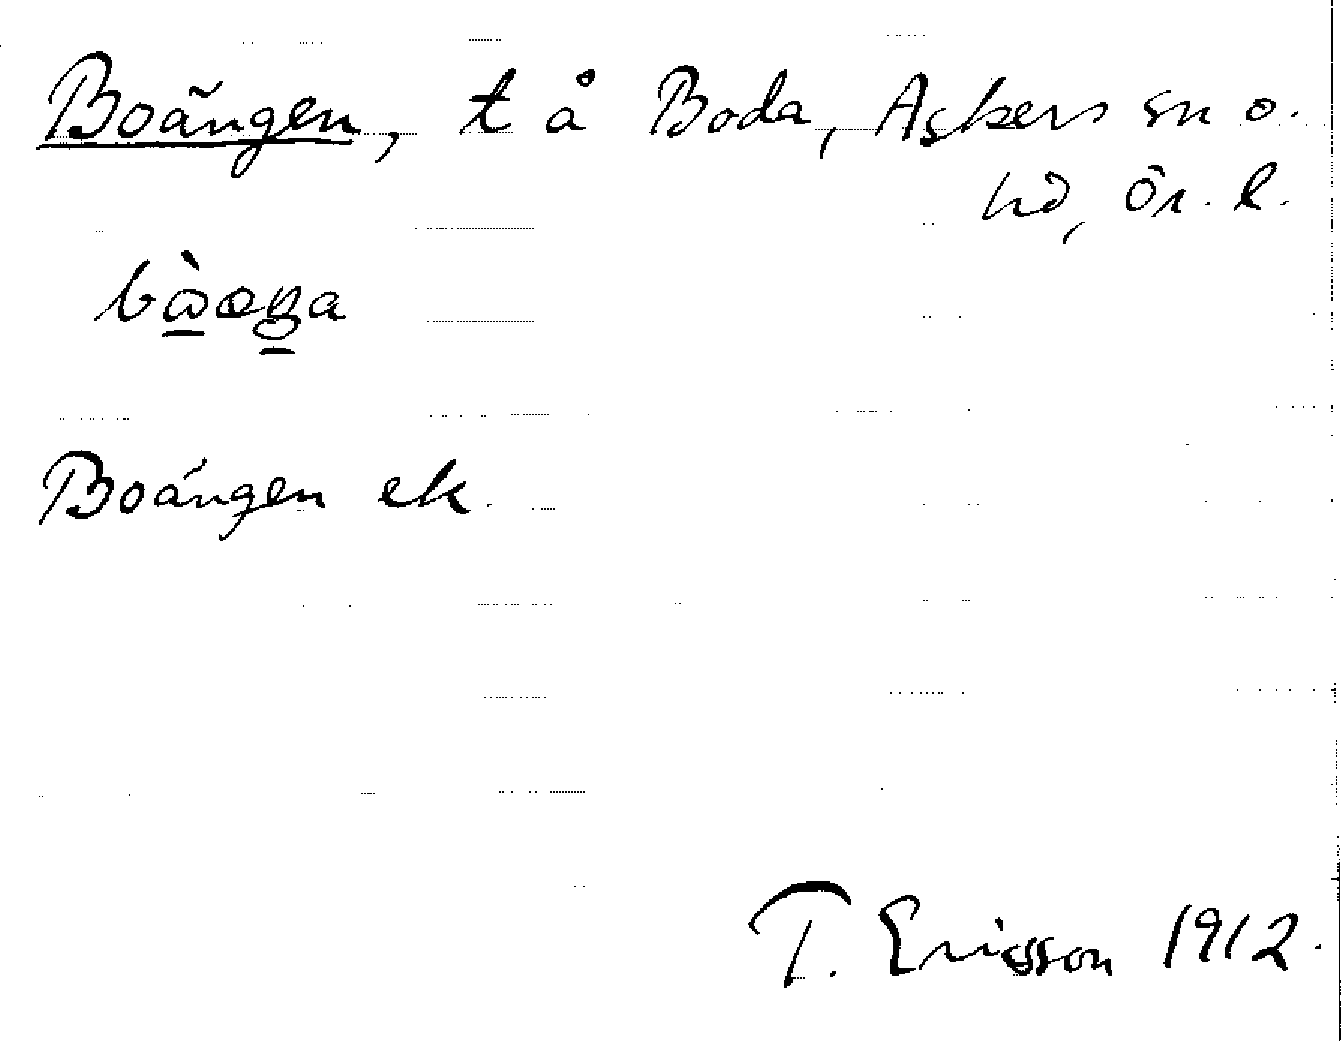 Boängen, t å Boda, Askers sn o.
hd, Ör. l.
bàωæŋa
Boängen ek.
T. Ericsson 1912.